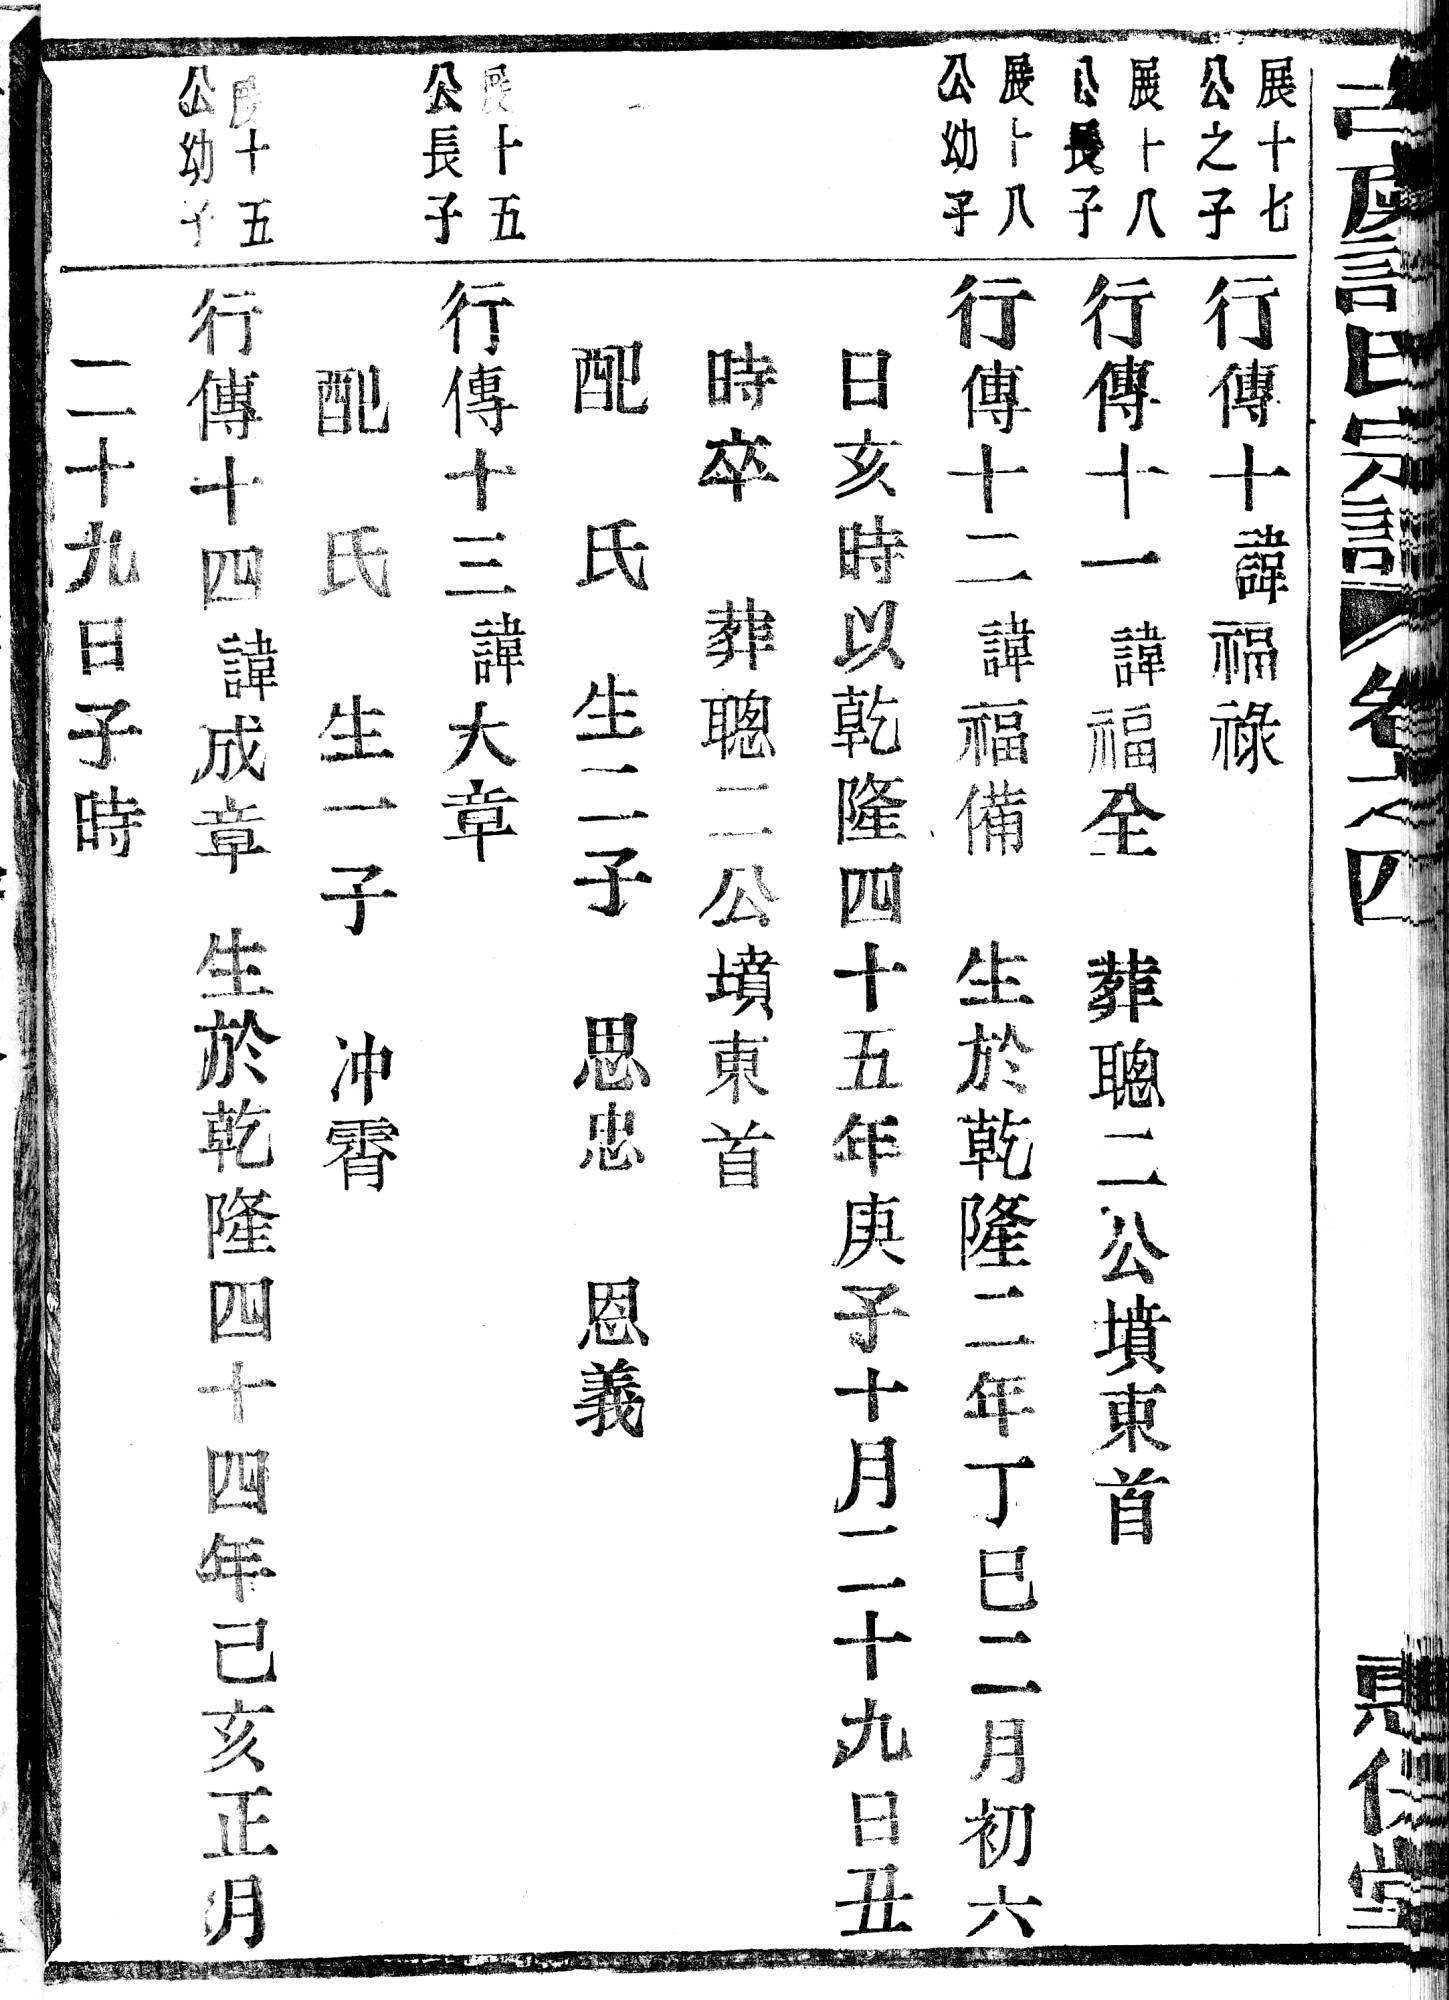 氏宗譜 卷之四
堂
展十七
公之子
行傳十 諱福祿
展十八
公長子
行傳十一 諱福全 葬聰二公墳東首
展十八
公幼子
行傳十二 諱福備 生於乾隆二年丁巳二月初六
日亥時以乾隆四十五年庚子十月二十九日丑
時卒 葬聰二公墳東首
配 氏 生二子 思忠 恩義
展十五
公長子
行傳十三 諱大章
配 氏 生一子 冲霄
展十五
公幼子
行傳十四 諱成章 生於乾隆四十四年己亥正月
二十九日子時